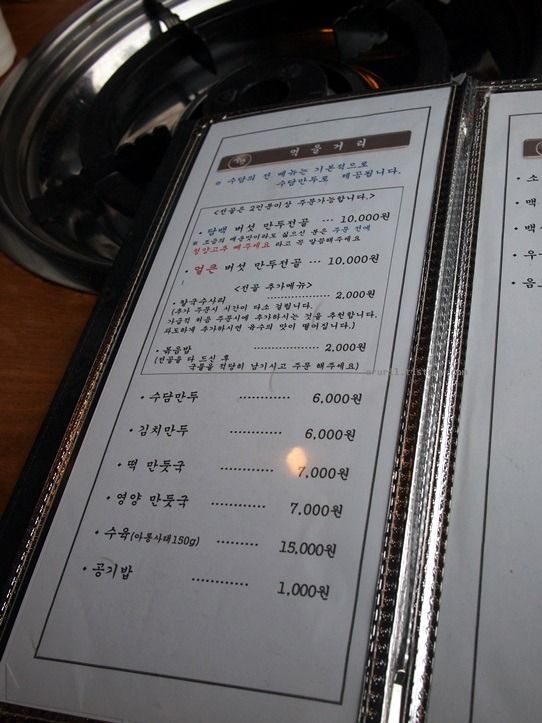 먹을거리
※ 수담의 전 메뉴는 기본적으로
수담만두로 제공됩니다.
<전골은 2인분이상 주문가능합니다.>
· 담백 버섯 만두전골 ··· 10,000원
※ 조금의 매운맛이라도 싫으신 분은 주문 전에
청양고추 빼주세요 라고 꼭 말씀해주세요
· 얼큰 버섯 만두전골 ··· 10,000원
<전골 추가메뉴>
· 칼국수사리 ··············· 2,000원
(추가 주문시 시간이 다소 걸립니다.
가급적 처음 주문시에 추가하시는 것을 추천합니다.
과도하게 추가하시면 육수의 맛이 떨어집니다.)
· 볶음밥 ··················· 2,000원
(전골을 다 드신 후
국물을 적당히 남기시고 주문 해주세요)
· 수담만두 ············ 6,000원
· 김치만두 ············ 6,000원
· 떡 만둣국 ············ 7,000원
· 영양 만둣국 ·········· 7,000원
· 수육(아롱사태150g) ········· 15,000원
· 공기밥 ············ 1,000원
· 소
· 맥
· 백
· 우
· 음